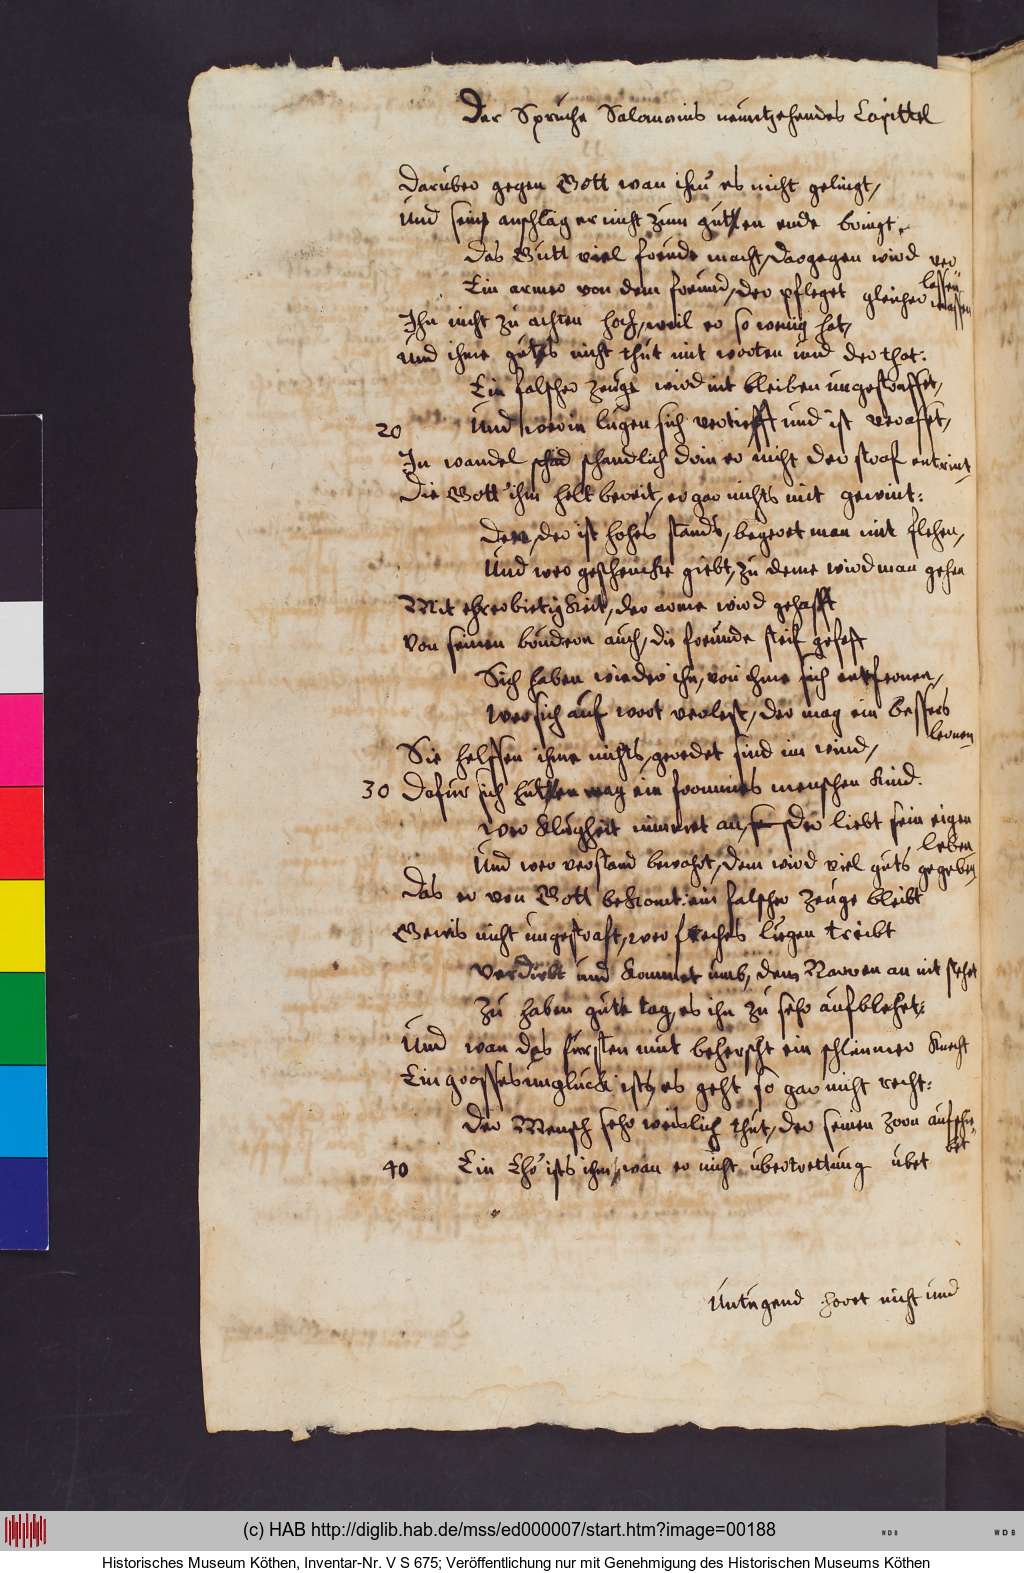 Der Spruche Salomonis neuntzehendes Capittel
Daruber gegen Gott wan ihm es nicht gelingt,
Und seine anschläg er nicht zum gutten ende bringt.
Das Gutt viel freunde macht, dargegen wird ver
lassen
Ein armer von dem freund, der pfleget gleicher massen
Ihn nicht zu achten hoch, weil er so wenig hat,
Und ihme gutes nicht thut mit worten und der that:
Ein falscher zeuge wird nit bleiben ungestraffet,
20 Und wer in lugen sich vertiefft und ist verafft,
In wandel schandlich drin er nicht der straf entrint
Die Gott ihm helt bereit, er gar nichts mit gewint:
Den, der ist hohes stands, begeret man mit flehen,
Und wer geschencke giebt, zu deme wird man gehen
Mit ehrerbietigkeit, der arme wird gehasst
Von seinen brudern auch, die freunde steif gefast
Sich haben wieder ihn, von ihme sich entfernen,
Wer sich auf wort verlest, der mag ein bessers
lernen
Sie helffen ihme nichts, geredet sind im wind,
30 Dafur sich hutten mag ein frommes menschen kind.
Wer klugheit nimmet an, der liebt sein eigen
leben
Und wer verstand bewahrt, dem wird viel guts gegeben,
Das er von Gott bekomt: ein falscher zeuge bleibt
Gewis nicht ungestraft, wer freches lugen treibt
Verdirbt und kommet umb, dem Narren an nit stehet
Zu haben gute tag, es ihn zu sehr aufblehet:
Und wan des fursten mut beherscht ein schlimmer knecht
Ein grosses ungluck ists, es geht so gar nicht recht:
Der Mensch sehr weislich thut, der seinen zorn aufschie-
bet
40 Ein Ehr ists ihm, wan er nicht ubertrettung ubet
Untugend horet nicht und
(c) HAB http://diglib.hab.de/mss/ed000007/start.htm?image=00188
WDB
WDB
Historisches Museum Köthen, Inventar-Nr. V S 675; Veröffentlichung nur mit Genehmigung des Historischen Museums Köthen